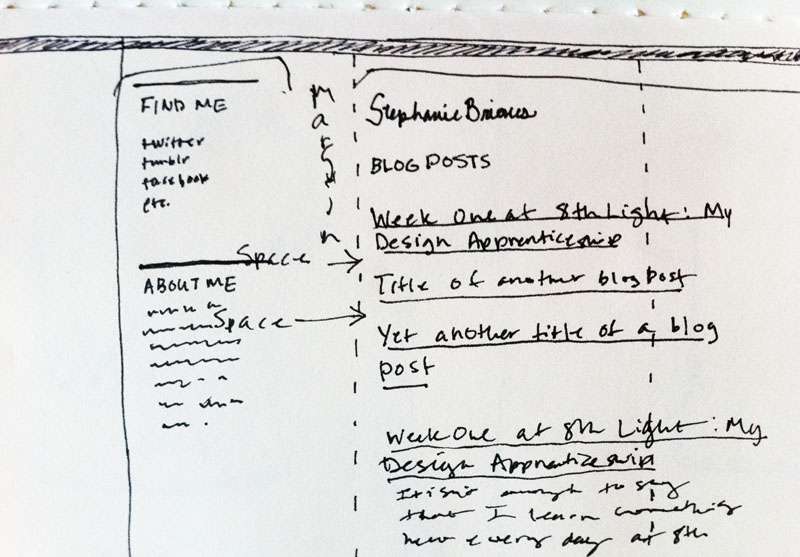 FIND ME
twitter
tumblr
facebook
etc.
Space
ABOUT ME
Space
Margin
Stephanie Briones
BLOG POSTS
Week One at 8th Light: My
Design Apprenticeship
Title of another blog post
Yet another title of a blog
post
Week One at 8th Light: My
Design Apprenticeship
It isn't enough to say
that I learn something
new every day at 8th